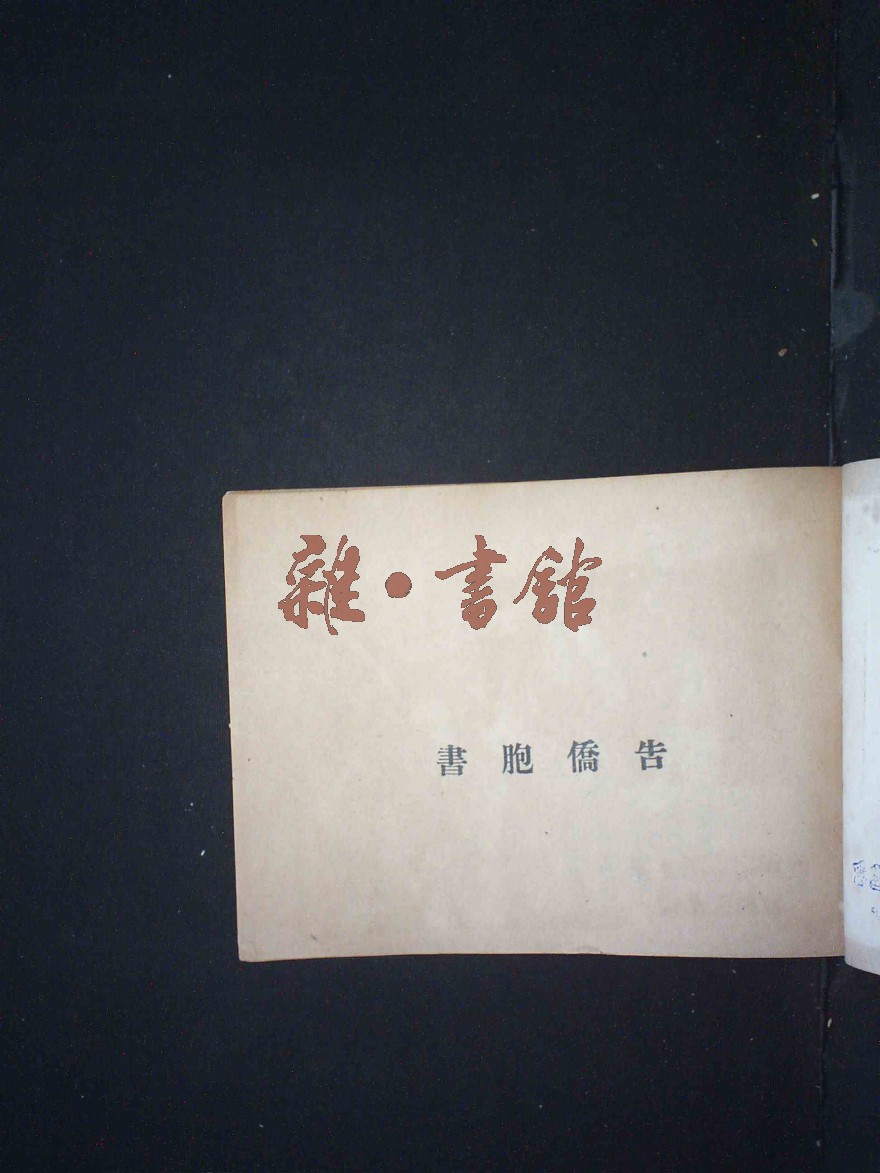 雜·書館
告僑胞書